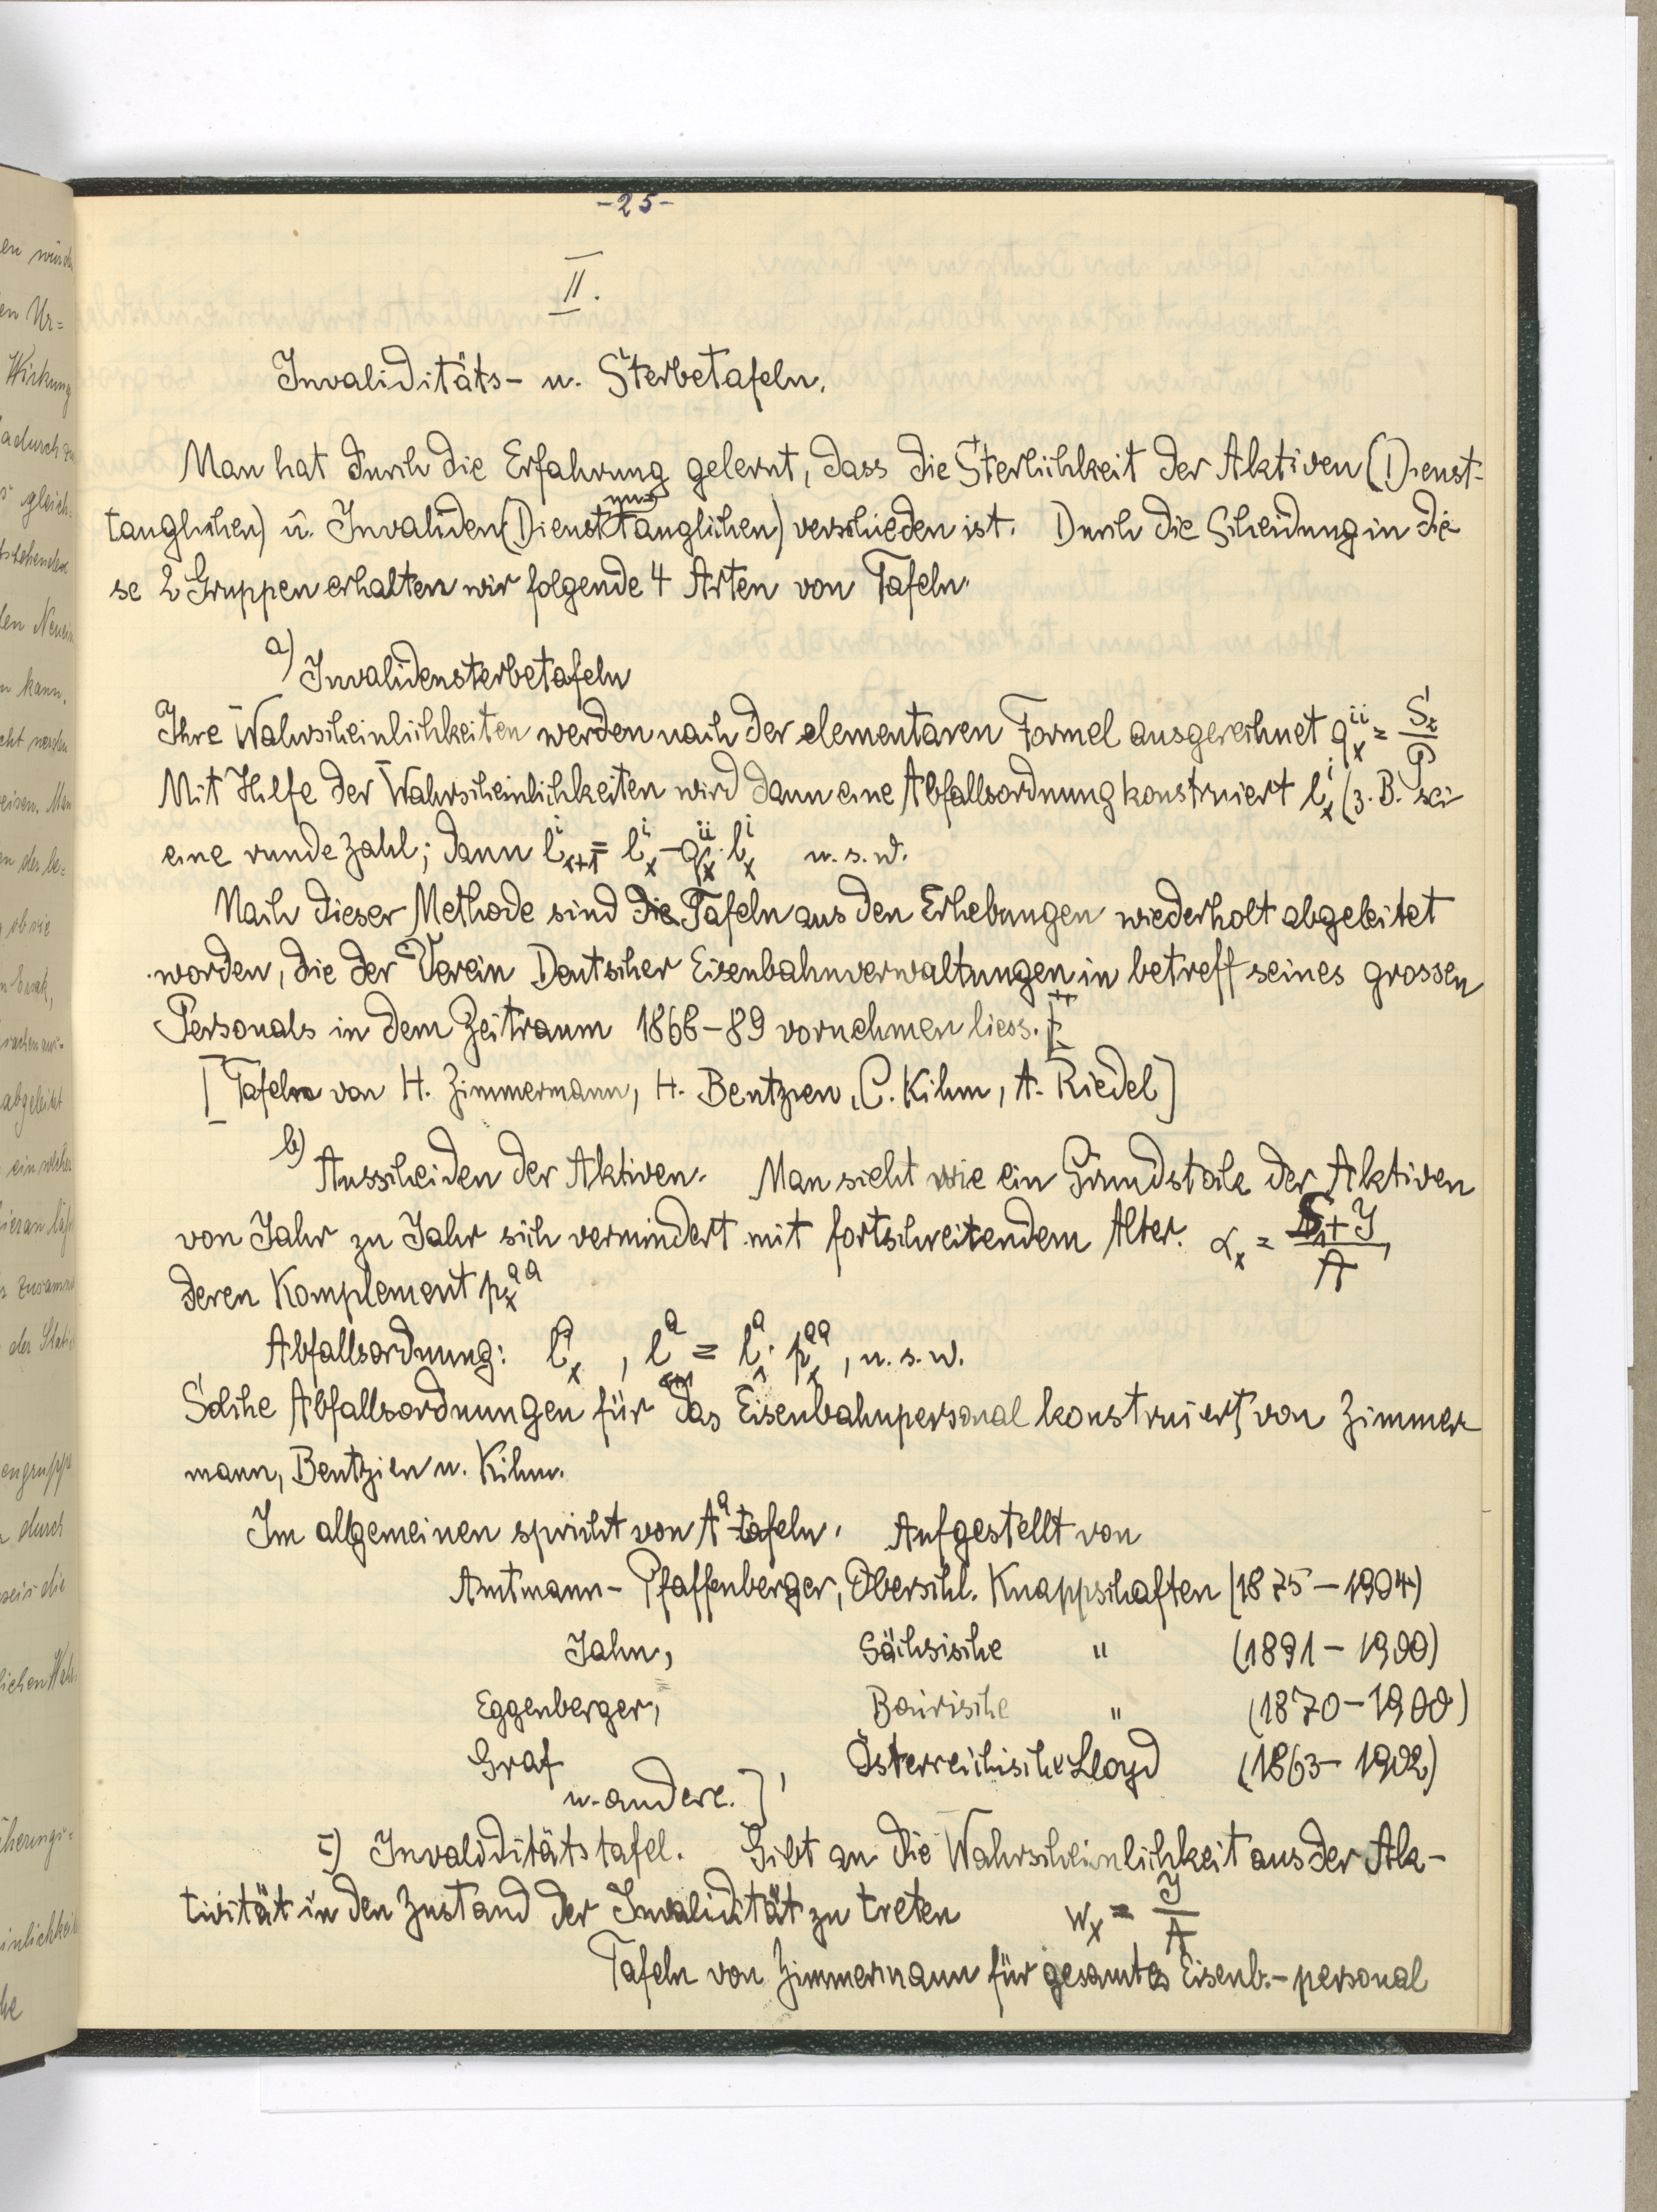 -25-
II.
Invaliditäts- u. Sterbetafeln.
Man hat durch die Erfahrung gelernt, dass die Sterblichkeit der Aktiven (Dienst-
tauglichen) u. Invaliden (Dienstuntauglichen) verschieden ist. Durch die Scheidung in die
se 2 Gruppen erhalten wir folgende 4 Arten von Tafeln.
a) Invalidensterbetafeln
Ihre Wahrscheinlichkeiten werden nach der elementaren Formel ausgerechnet q_x^{ii} = S_i/P
Mit Hilfe der Wahrscheinlichkeiten wird dann eine Abfallsordnung konstruiert l_x^i (z. B. sei
eine runde Zahl; dann l_{x+1}^i = l_x^i - q_x^{ii} · l_x^i u. s. w.
Nach dieser Methode sind die Tafeln aus den Erhebungen wiederholt abgeleitet
worden, die der Verein Deutscher Eisenbahnverwaltungen in betreff seines grossen
Personals in dem Zeitraum 1868-89 vornehmen liess.
[Tafeln von H. Zimmermann, H. Bentzien, C. Kihm, A. Riedel]
b) Ausscheiden der Aktiven. Man sieht wie ein Grundstock der Aktiven
von Jahr zu Jahr sich vermindert mit fortschreitendem Alter. α_x = S+J/A,
deren Komplement p_x^{aa}
Abfallsordnung: l_x^a, l_{x+1}^a = l_x^a · p_x^{aa}, u. s. w.
Solche Abfallsordnungen für das Eisenbahnpersonal konstruiert von Zimmer
mann, Bentzien u. Kihm.
Im allgemeinen spricht von A^a-tafeln. Aufgestellt von
Amtmann- Pfaffenberger, Oberschl. Knappschaften (1875-1904)
Jahn, Sächsische " (1891-1900)
Eggenberger, Bairische " (1870-1900)
Graf, Österreichische Lloyd (1863-1902)
u. andere.]
c) Invaliditätstafel. Gibt an die Wahrscheinlichkeit aus der Ak-
tivität in den Zustand der Invalidität zu treten w_x = J/A
Tafeln von Zimmermann für gesamtes Eisenb.-personal